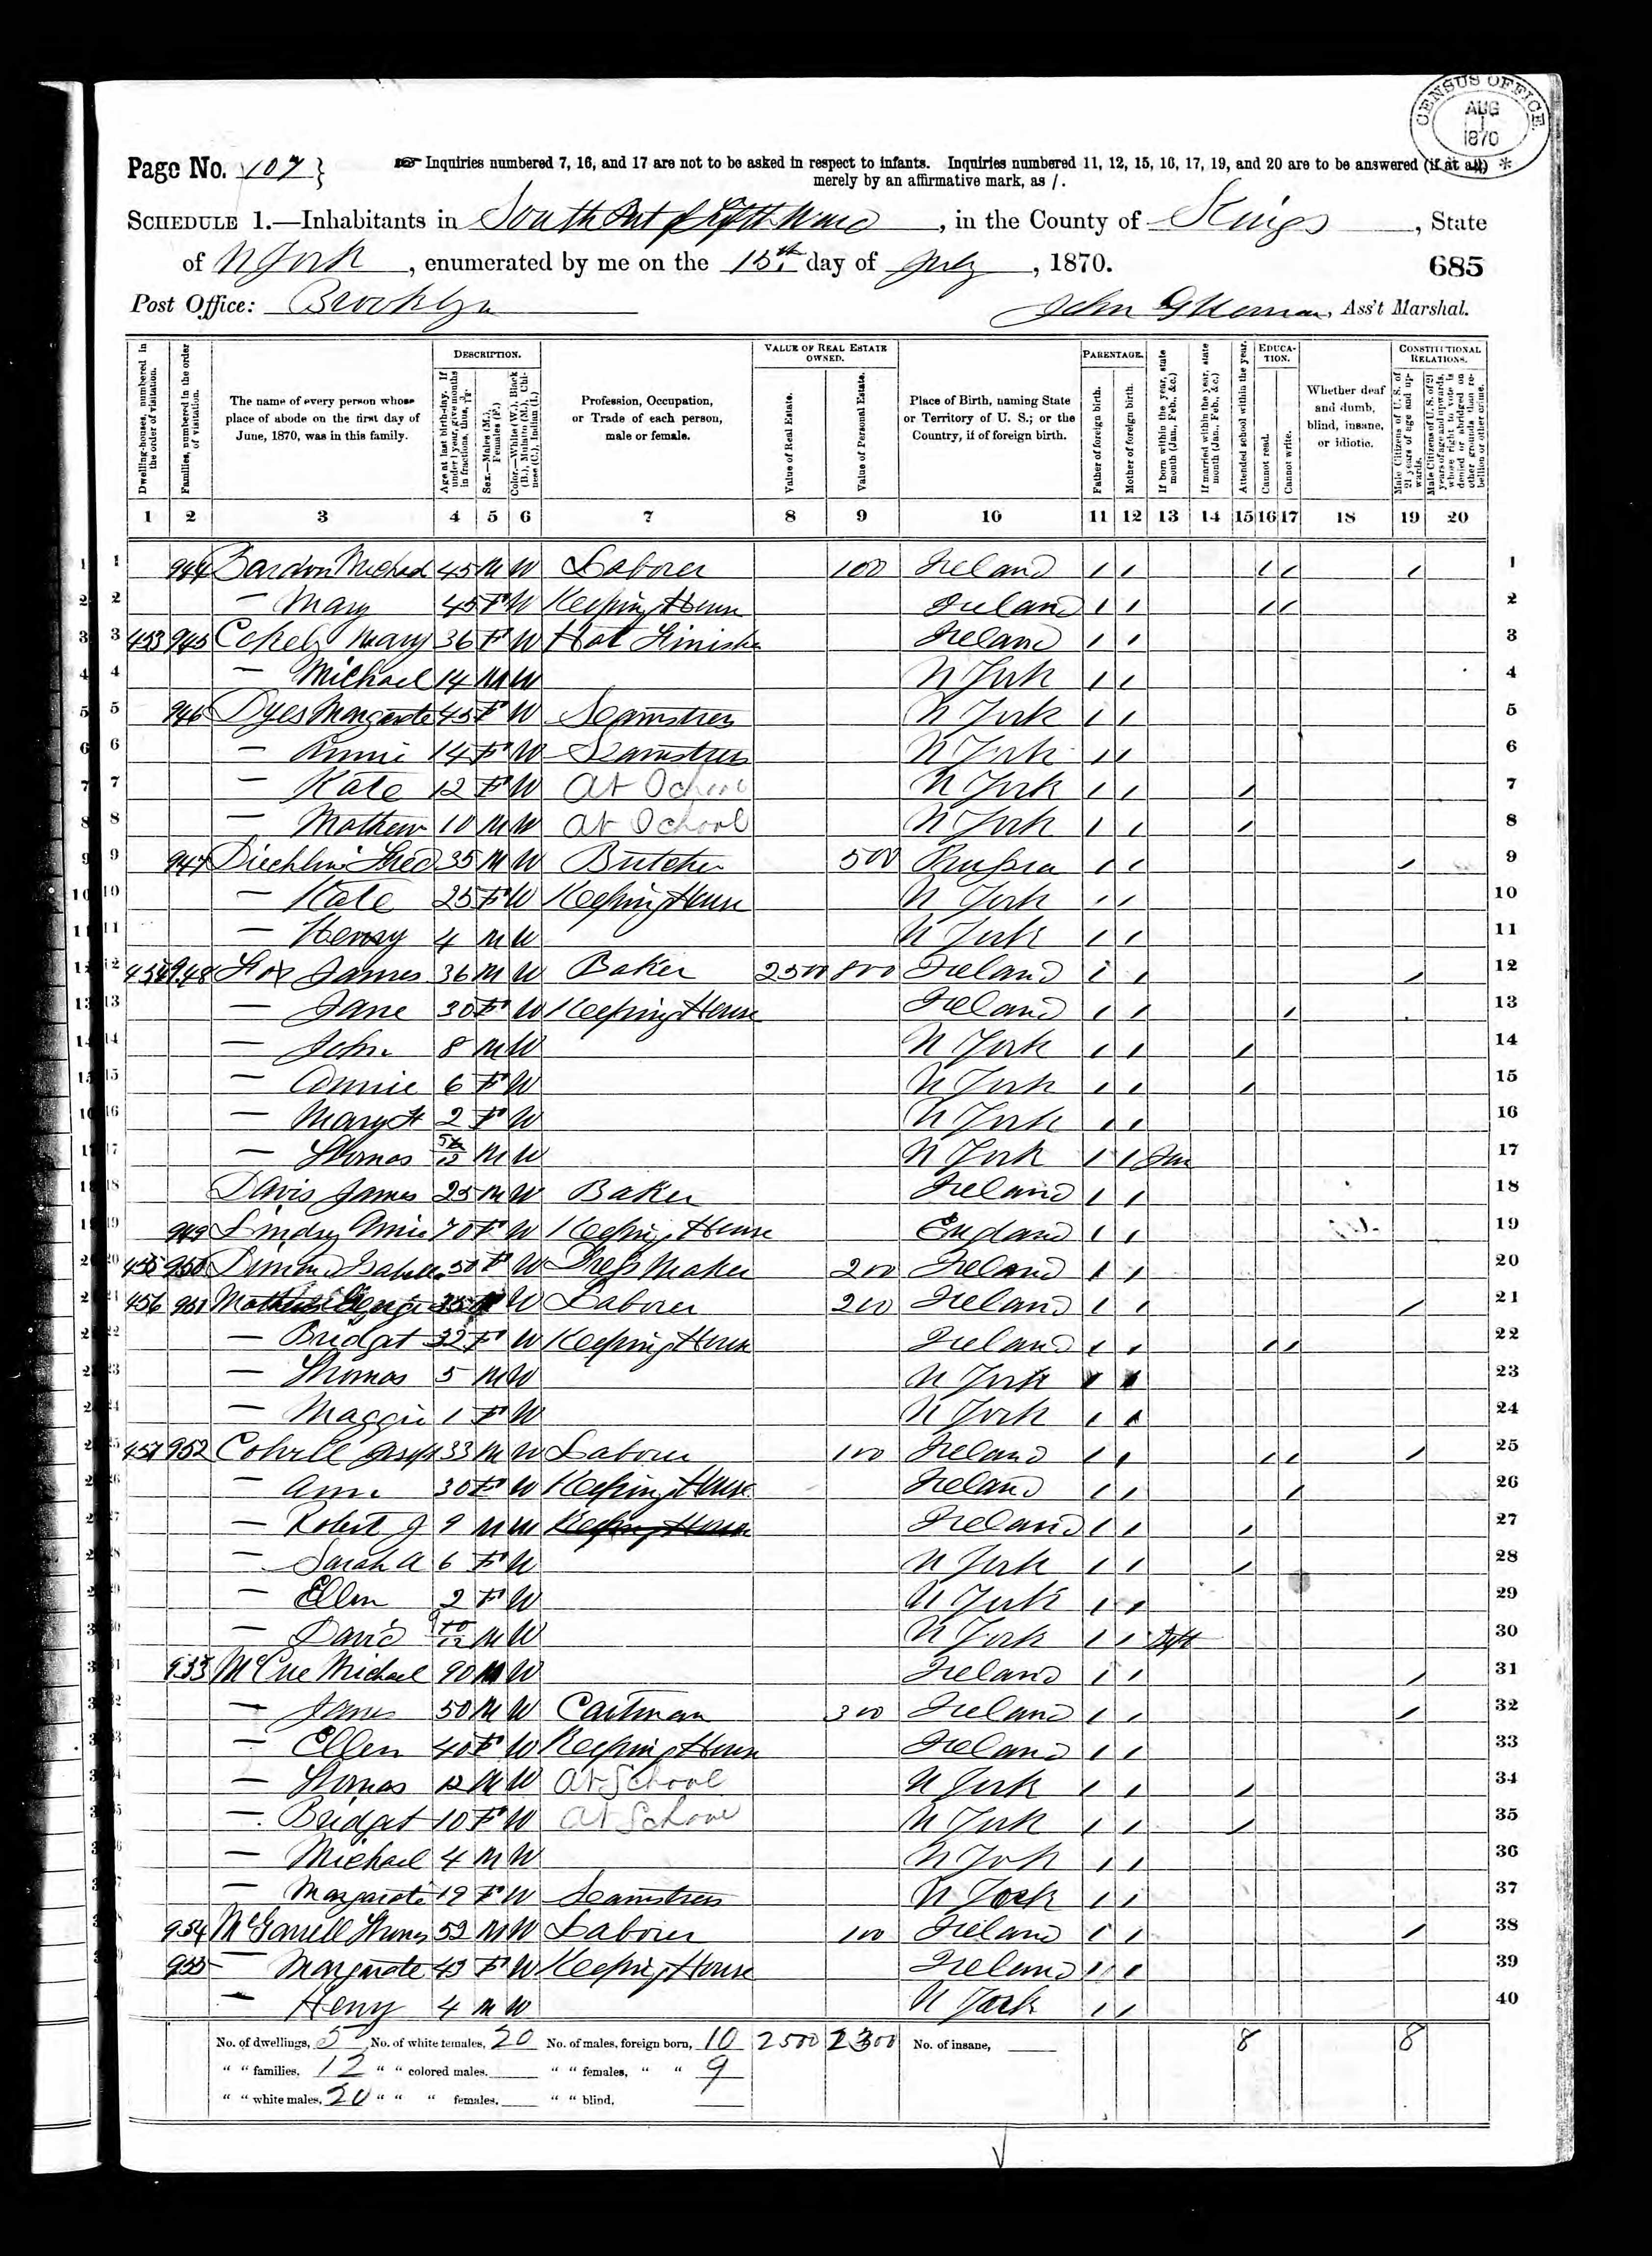 CENSUS OFFICE
AUG
1
1870
Page No. 107
Inquiries numbered 7, 16, and 17 are not to be asked in respect to infants. Inquiries numbered 11, 12, 15, 16, 17, 19, and 20 are to be answered (if at all)
merely by an affirmative mark, as /.
SCHEDULE 1.—Inhabitants in South Part of Fifth Ward, in the County of Kings, State
of N York, enumerated by me on the 15th day of July, 1870. 685
Post Office: Brooklyn
John, Ass't Marshal.
Dwelling-houses, numbered in the order of visitation.
Families, numbered in the order of visitation.
The name of every person whose place of abode on the first day of June, 1870, was in this family.
DESCRIPTION.
Age at last birth-day. If under 1 year, give months in fractions, thus, 3/12.
Sex.—Males (M.), Females (F.)
Color.—White (W.), Black (B.), Mulatto (M.), Chinese (C.), Indian (I.)
Profession, Occupation, or Trade of each person, male or female.
VALUE OF REAL ESTATE OWNED.
Value of Real Estate.
Value of Personal Estate.
Place of Birth, naming State or Territory of U. S.; or the Country, if of foreign birth.
PARENTAGE.
Father of foreign birth.
Mother of foreign birth.
If born within the year, state month (Jan., Feb., &c.)
If married within the year, state month (Jan., Feb., &c.)
Attended school within the year.
EDUCATION.
Cannot read.
Cannot write.
Whether deaf and dumb, blind, insane, or idiotic.
CONSTITUTIONAL RELATIONS.
Male Citizens of U. S. of 21 years of age and upwards.
Male Citizens of U. S. of 21 years of age and upwards, whose right to vote is denied or abridged on other grounds than rebellion or other crime.
1 2 3 4 5 6 7 8 9 10 11 12 13 14 15 16 17 18 19 20
1 944 Michael 45 M W Laborer 100 Ireland / / / / / 1
2 — Mary 45 F W Keeping House Ireland / / / / 2
3 453 945 Mary 36 F W Hat Finisher Ireland / / 3
4 — Michael 14 M W N York / / 4
5 946 Dyes Margarete 45 F W Seamstress N York / / 5
6 — Annie 14 F W Seamstress N York / / 6
7 — Kate 12 F W At School N York / / / 7
8 — Mathew 10 M W At School N York / / / 8
9 947 Fred 35 M W Butcher 500 Prussia / / / 9
10 — Kate 25 F W Keeping House N York / / 10
11 — Henry 4 M W N York / / 11
12 454 948 Fox James 36 M W Baker 2500 800 Ireland / / / 12
13 — Jane 30 F W Keeping House Ireland / / / 13
14 — John 8 M W N York / / / 14
15 — Annie 6 F W N York / / / 15
16 — Mary 2 F W N York / / 16
17 — Thomas 5/12 M W N York / / Jan 17
18 Davis James 25 M W Baker Ireland / / 18
19 949 Lindsy Annie 70 F W Keeping House England / / 19
20 455 950 50 F W Dress Maker 200 Ireland / / 20
21 456 951 Mathews George 35 M W Laborer 200 Ireland / / / 21
22 — Bridget 32 F W Keeping House Ireland / / / / 22
23 — Thomas 5 M W N York / / 23
24 — Maggie 1 F W N York / / 24
25 457 952 Joseph 33 M W Laborer 100 Ireland / / / / / 25
26 — Ann 30 F W Keeping House Ireland / / / 26
27 — Robert J 9 M W Keeping House Ireland / / / 27
28 — Sarah A 6 F W N York / / / 28
29 — Ellen 2 F W N York / / 29
30 — David 9/12 M W N York / / Sept 30
31 953 McCue Michael 90 M W Ireland / / / 31
32 — James 50 M W Cartman 300 Ireland / / / 32
33 — Ellen 40 F W Keeping House Ireland / / 33
34 — Thomas 12 M W At School N York / / / 34
35 — Bridget 10 F W At School N York / / / 35
36 — Michael 4 M W N York / / 36
37 — Margarete 19 F W Seamstress N York / / 37
38 954 Thomas 52 M W Laborer 100 Ireland / / / 38
39 955 — Margarete 43 F W Keeping House Ireland / / 39
40 — Henry 4 M W N York / / 40
No. of dwellings, 5 No. of white females, 20 No. of males, foreign born, 10 2500 2300 No. of insane, 8 8
" " families, 12 " " colored males, " " females, " " 9
" " white males, 20 " " " females, " " blind,